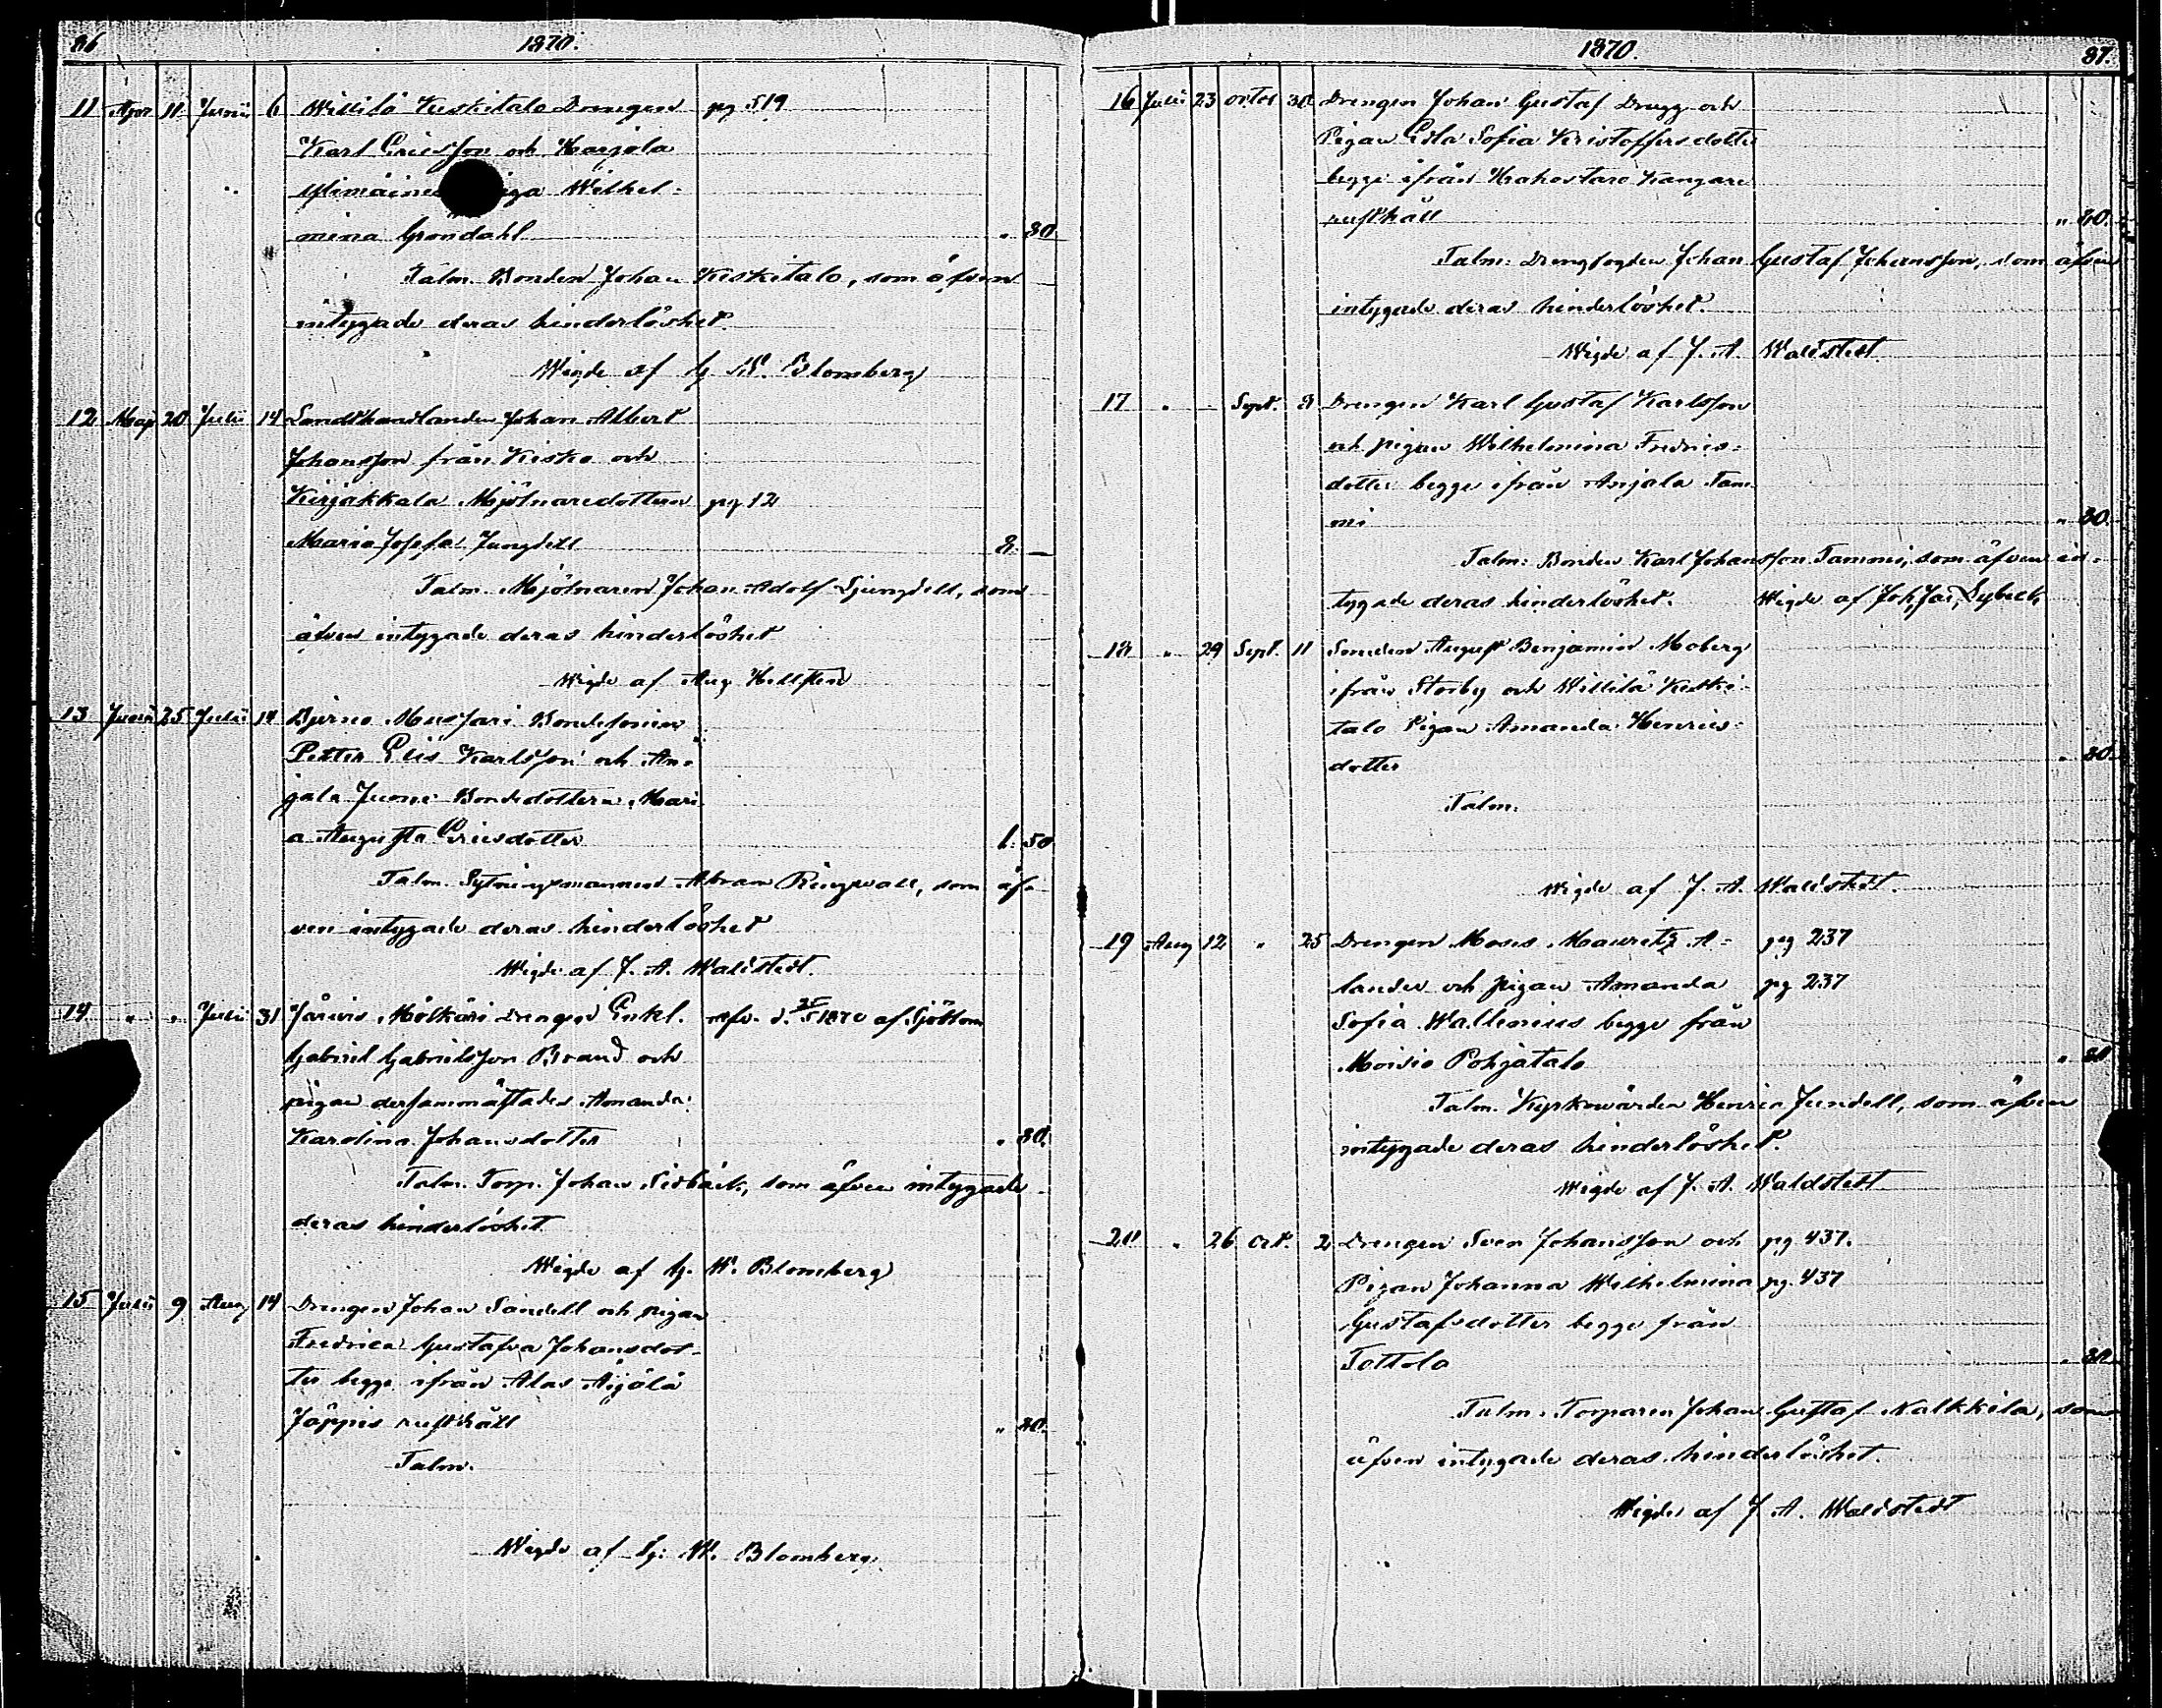 86 1870.
11 Apr 11 Junii 6 Willilä Keskitalo Drengen pg 519
Karl Ericsson och Karjala
Ylimäinen Wilhel=
mina Gröndahl " 80
Talm. Bonden Johan Keskitalo, som äfven
intygade deras hinderlöshet.
Wigde af G. W. Blomberg
12 Maji 20 Julii 14 Landthandlanden Johan Albert
Johansson från Kisko och
Kirjakkala Mjölnaredottern pg 12
Maria Josefa Ljungdell 8. —
Talm. Mjölnaren Johan Adolf Ljungdell, som
äfven intygade deras hinderlöshet
Wigde af Aug. Hellsten
13 Junii 25 Julii 14 Bjerno Bondesonen
Petter Elis Karlsson och An=
jala Juoni Bondedottern Mari
a Augusta Ericsdotter 1. 50
Talm. Sytningsmannen Abram Ringwall, som äf=
ven intygade deras hinderlöshet
Wigde af J. A. Waldstedt.
14 " " Julii 31 Järvis Mälkäri Drengen Enkl. 1870 af Sjöblom
Gabriel Gabrielsson Brand och
pigan dersammastädes Amanda
Karolina Johansdotter " 80.
Talm. Torp. Johan Sidbäck, som äfven intygade
deras hinderlöshet
Wigde af G. W. Blomberg
15 Julii 9 Aug 14 Drengen Johan Sandell och pigan
Fredrica Gustafva Johansdot=
ter begge ifrån Alas Äijälä
Jöppis rusthåll " 80.
Talm.
Wigde af G. W. Blomberg.
1870. 87.
16 Julii 23 octob 30 Drengen Johan Gustaf Drugg och
Pigan Edla Sofia Kristoffersdotter
begge ifrån Hakostaro Kangare
rusthåll " 80.
Talm: Drengfogden Johan Gustaf Johansson, som äfven
intygade deras hinderlöshet.
Wigde af J. A. Waldstedt
17 " Sept. 8 Drengen Karl Gustaf Karlsson
och pigan Wilhelmina Fredrics=
dotter begge ifrån Anjala Tam
mi " 80.
Talm: Bonden Karl Johansson Tammi, som äfven in=
tygade deras hinderlöshet. Wigde af Joh. Jac. Dybeck
18 " 29 Sept. 11 Smeden August Benjamin Moberg
ifrån Storby och Willilä Keski
talo Pigan Amanda Henrics=
dotter " 80.
Talm.
Wigde af J. A. Waldstedt.
19 Aug 12 " 25 Drengen Moses Mauritz A= pg 237
lander och pigan Amanda pg 237
Sofia Wallenius begge från
Moisio Pohjatalo " 80
Talm. Kyrkowärden Henric Jundell, som äfven
intygade deras hinderlöshet.
Wigde af J. A. Waldstedt
20 " 26 Oct. 2 Drengen Sven Johansson och pg 437.
Pigan Johanna Wilhelmina pg. 437
Gustafsdotter begge från
Tottola " 80.
Talm. Torparen Johan Gustaf Nalkkila, som
äfven intygade deras hinderlöshet.
Wigde af J. A. Waldstedt